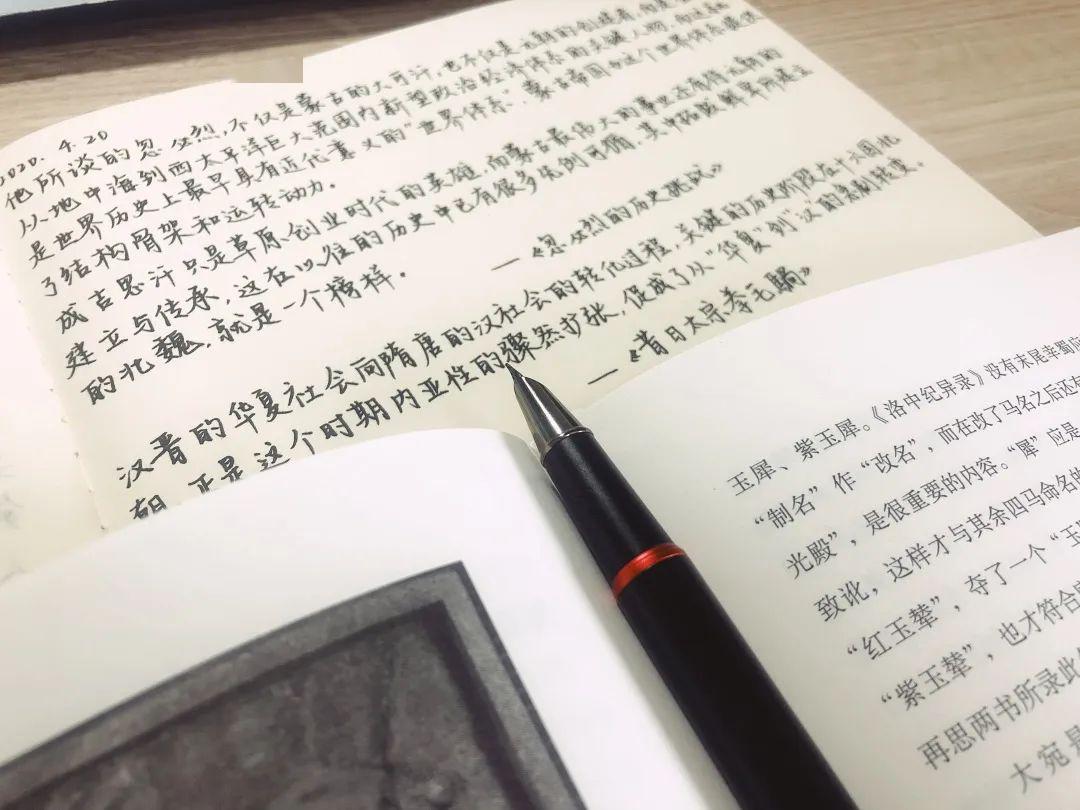 2020.4.20
他所谈的忽必烈,不仅是蒙古的大可汗,也不仅是元朝的创建者,而是
从地中海到西太平洋巨大范围内新型政治经济体系的关键人物,而这
是世界历史上最早具有近代意义的“世界体系”,蒙古帝国为这个世界体系提供
了结构骨架和运转动力。
成吉思汗只是草原创业时代的英雄,而蒙古最伟大的事业还有待元朝的
建立与传承,这在以往的历史中已有很多先例可循,其中拓跋鲜卑所建立
的北魏,就是一个榜样。
—《忽必烈的历史挑战》
汉晋的华夏社会向隋唐的汉社会的转化过程,关键的历史阶段在十六国北
朝,正是这个时期内亚性的骤然扩张,促成了从“华夏”到“汉”的急剧转变。
—《昔日太宗拳毛䯄》
玉犀、紫玉犀。《洛中纪异录》没有末尾幸蜀
“制名”作“改名”,而在改了马名之后还
光殿”,是很重要的内容。“犀”应是
致讹,这样才与其余四马命名的
“红玉辇”,夺了一个“玉
“紫玉辇”,也才符合
再思两书所录此
大宛是